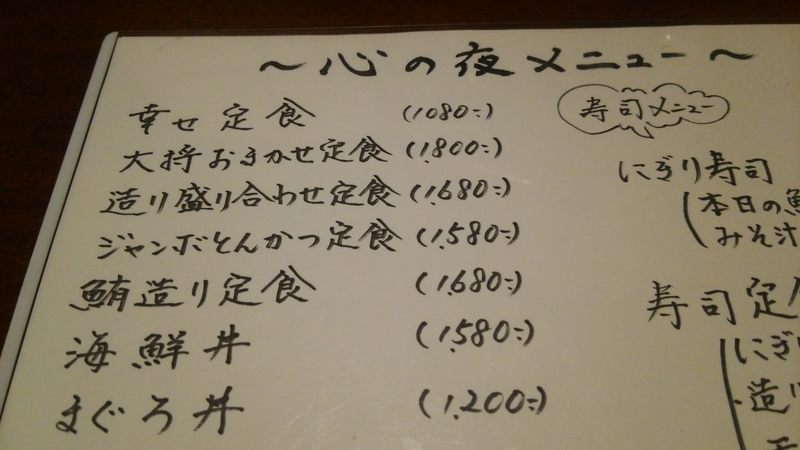 ～心の夜メニュー～
幸せ定食 (1080-)
大将おまかせ定食 (1,800-)
造り盛り合わせ定食 (1,680-)
ジャンボとんかつ定食 (1,580-)
鮪造り定食 (1,680-)
海鮮丼 (1,580-)
まぐろ丼 (1,200-)
寿司メニュー
にぎり寿司
(本日の
みそ汁
寿司定
にぎり
・造り